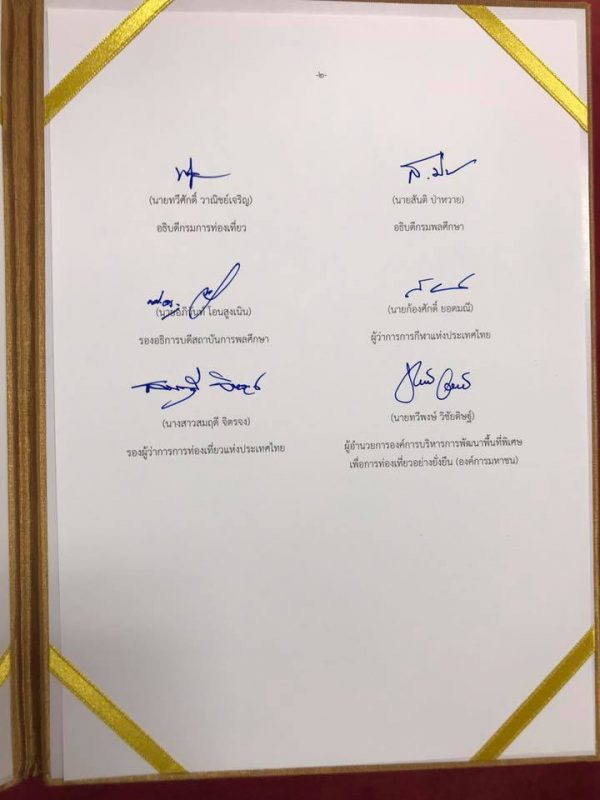 -๒-
(นายทวีศักดิ์ วาณิชย์เจริญ)
อธิบดีกรมการท่องเที่ยว
(นายสันติ ป่าหวาย)
อธิบดีกรมพลศึกษา
(นายอภินันท์ โอนสูงเนิน)
รองอธิการบดีสถาบันการพลศึกษา
(นายก้องศักดิ์ ยอดมณี)
ผู้ว่าการการกีฬาแห่งประเทศไทย
(นางสาวสมฤดี จิตรจง)
รองผู้ว่าการการท่องเที่ยวแห่งประเทศไทย
(นายทวีพงษ์ วิชัยดิษฐ์)
ผู้อำนวยการองค์การบริหารการพัฒนาพื้นที่พิเศษ
เพื่อการท่องเที่ยวอย่างยั่งยืน (องค์การมหาชน)